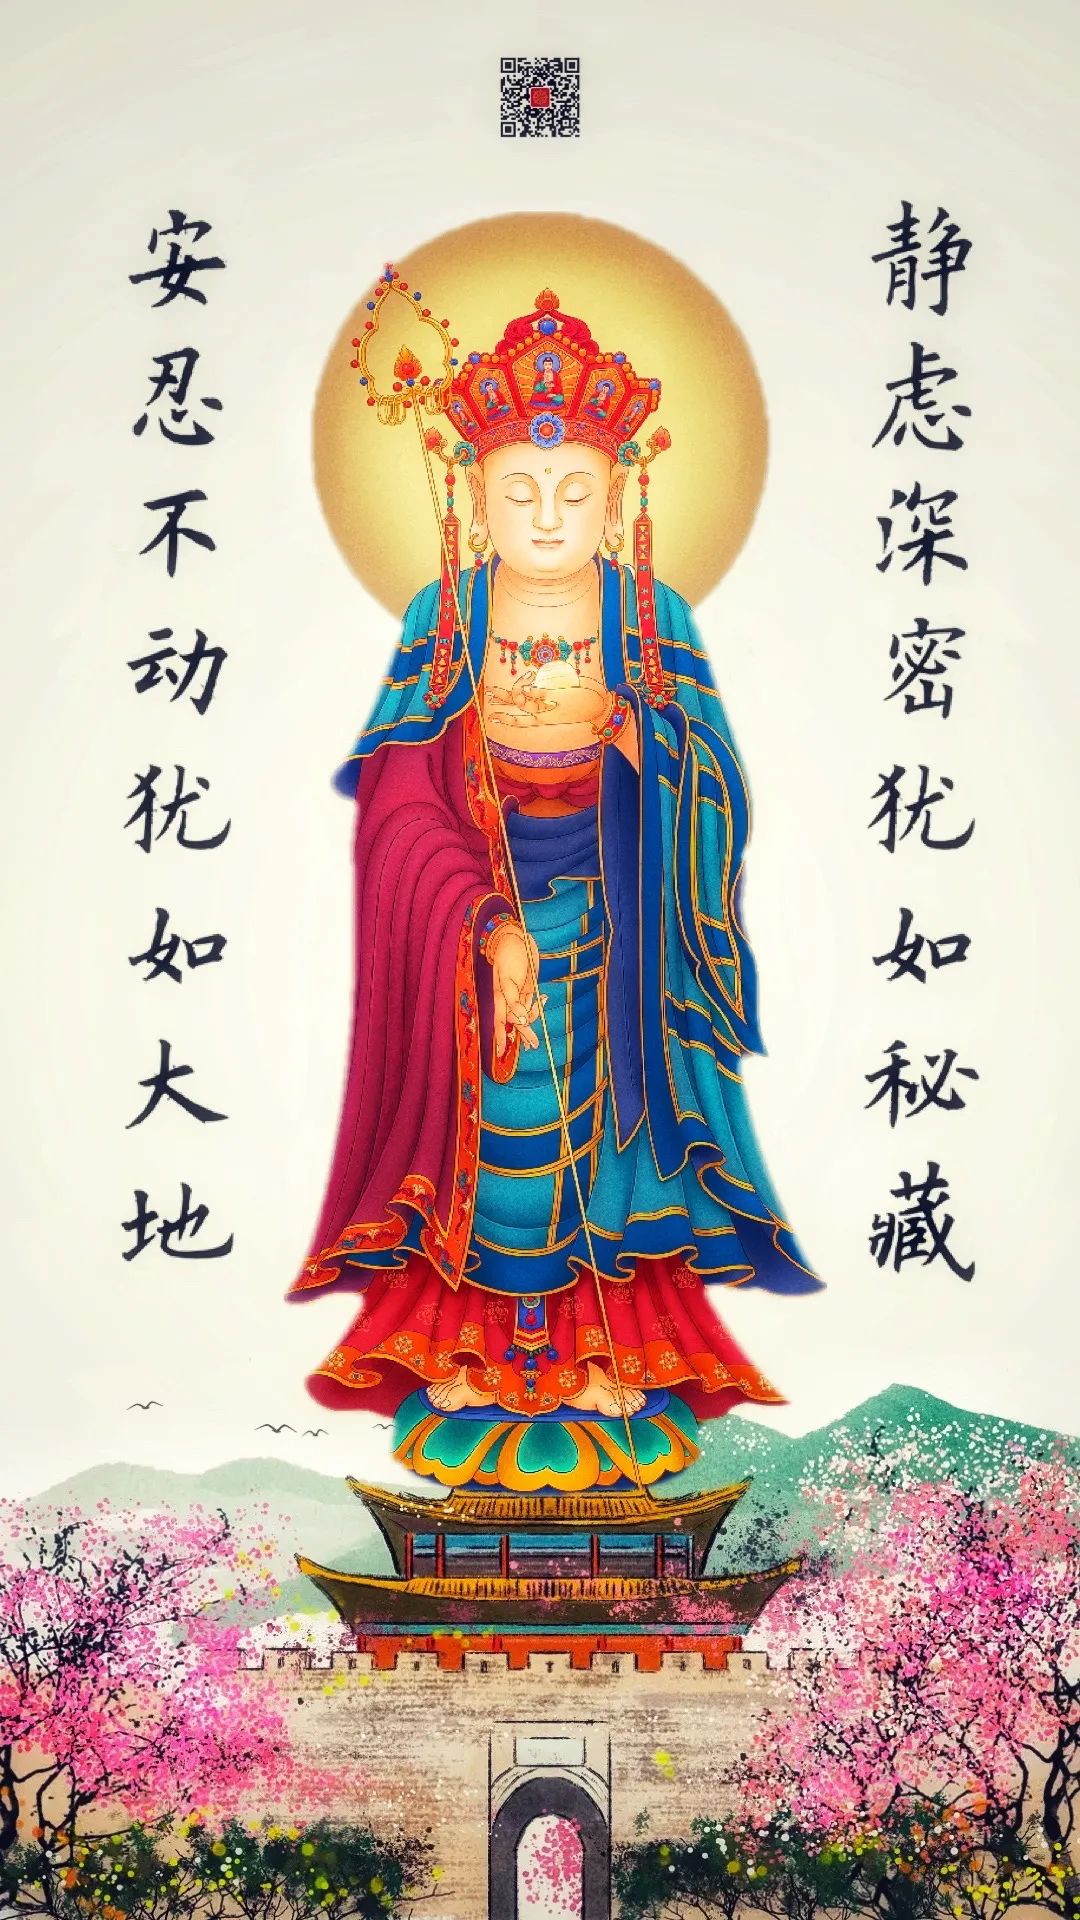 安忍不动犹如大地
静虑深密犹如秘藏